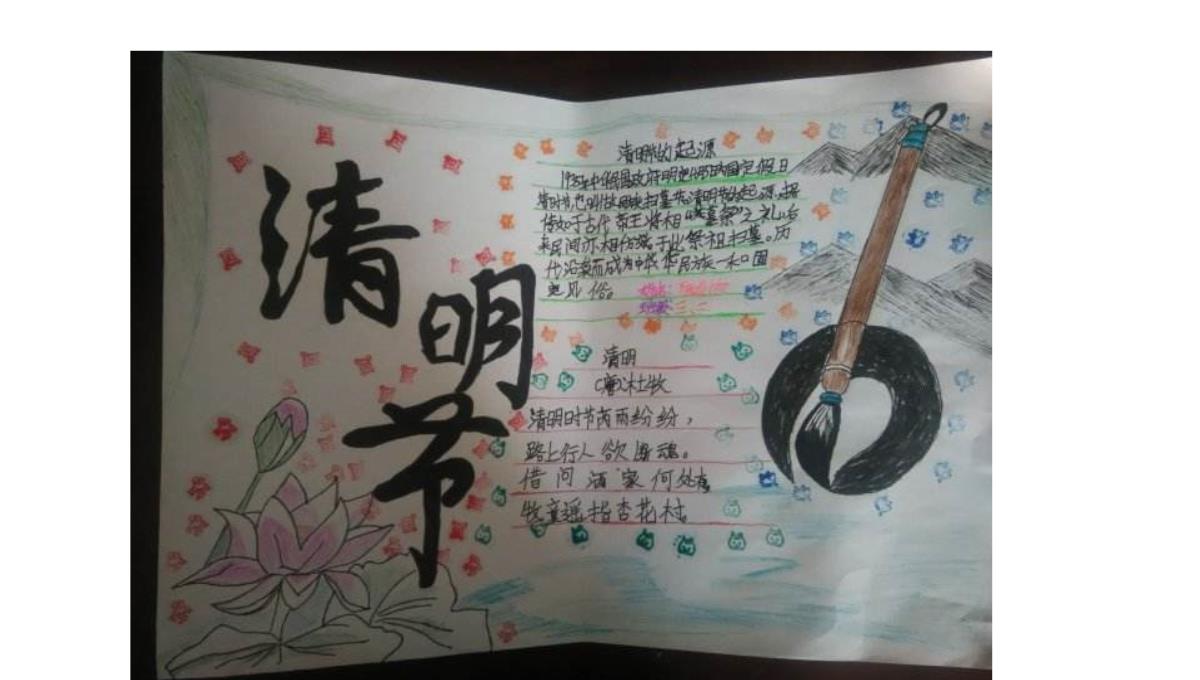 清明节
清明节的起源
1935年中华民国政府明定4月5日为国定假日
清明节,也叫做民族扫墓节。清明节的起源,据
传始于古代帝王将相“墓祭”之礼,后
来民间亦相仿效于此祭祖扫墓。历
代沿袭而成为中华民族一种固
定风俗。
清明
(唐)杜牧
清明时节芮雨纷纷,
路上行人欲断魂。
借问酒家何处有
牧童遥指杏花村。